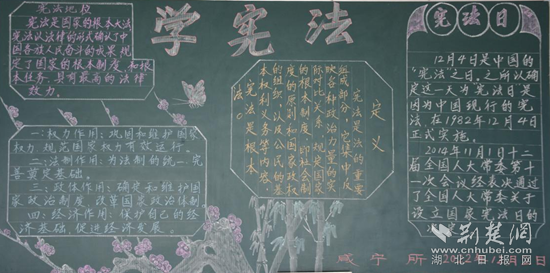 学宪法
宪法地位
宪法是国家的根本大法
宪法以法律的形式确认了中
国各族人民奋斗的成果，规
定了国家的根本制度和
根本任务，具有最高的法律
效力。
一：权力作用：巩固和维护国家
权力，规范国家权力有效运行。
二：法制作用：为法制的统一、完
善奠定基础。
三：政体作用：确定和维护国
家政治制度，改革国家政治体制
四：经济作用：保护自己的经
济基础，促进经济发展
定义
宪法是法的重要
组成部分，它集中反
映各种政治力量的实
际对比关系，规定国家
的根本制度，即社会制
度的原则和国家政权
的组织以及公民的基
本权利义务等内容，
宪法是根本
法。
宪法日
12月4日是中国的
“宪法”之日，之所以确
定这一天为宪法日是
因为中国现行的宪
法在1982年12月4日
正式实施。
2014年11月1日十二
届全国人大常委第十
一次会议经表决通过
了全国人大常委关于
设立国家宪法日的
咸宁所
荆楚网
www.cnhubei.com
湖北日报网